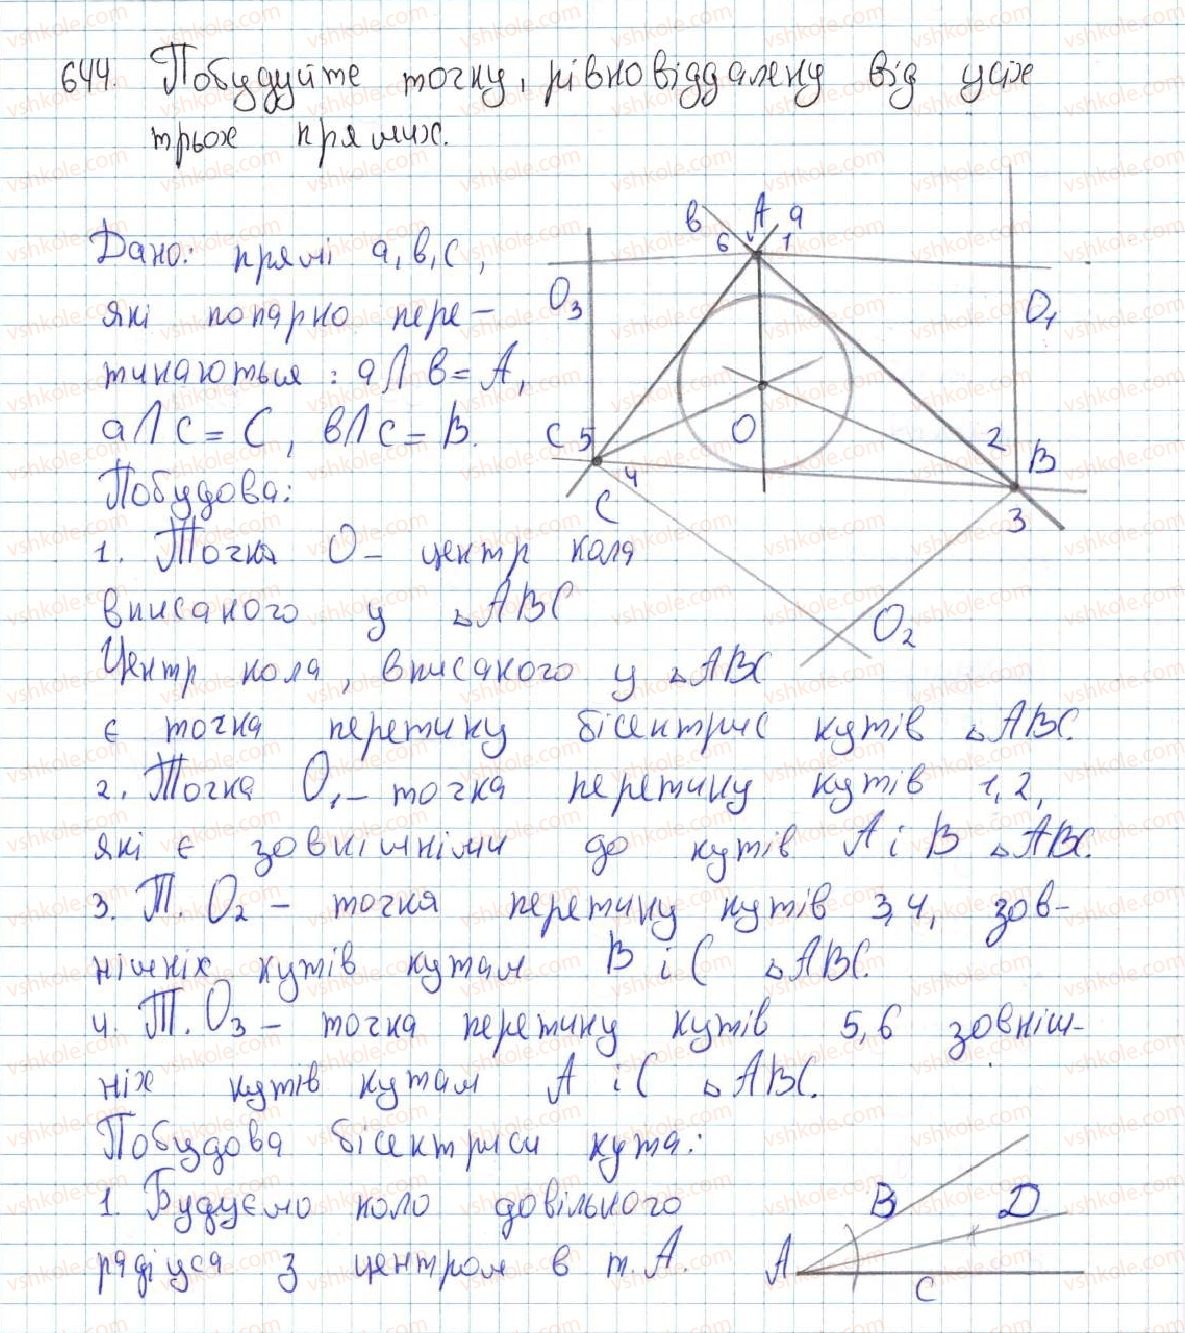 644. Побудуйте точку, рівновіддалену від усіх
трьох прямих.
Дано: прямі a, b, c,
які попарно пере-
тинаються: a∩b=A,
a∩c=C, b∩c=B.
Побудова:
1. Точка O – центр кола
вписаного у △ABC
Центр кола, вписаного у △ABC
є точка перетину бісектрис кутів △ABC.
2. Точка O₁ – точка перетину кутів 1, 2,
які є зовнішніми до кутів A і B △ABC.
3. Т. O₂ – точка перетину кутів 3, 4, зов-
нішніх кутів кутам B і C △ABC.
4. Т. O₃ – точка перетину кутів 5, 6 зовніш-
ніх кутів кутам A і C △ABC.
Побудова бісектриси кута:
1. Будуємо коло довільного
радіуса з центром в т. A.
b A a
6 1
O₃ O₁
O
c 5 2 B
4
C 3
O₂
B D
A C
vshkole.com